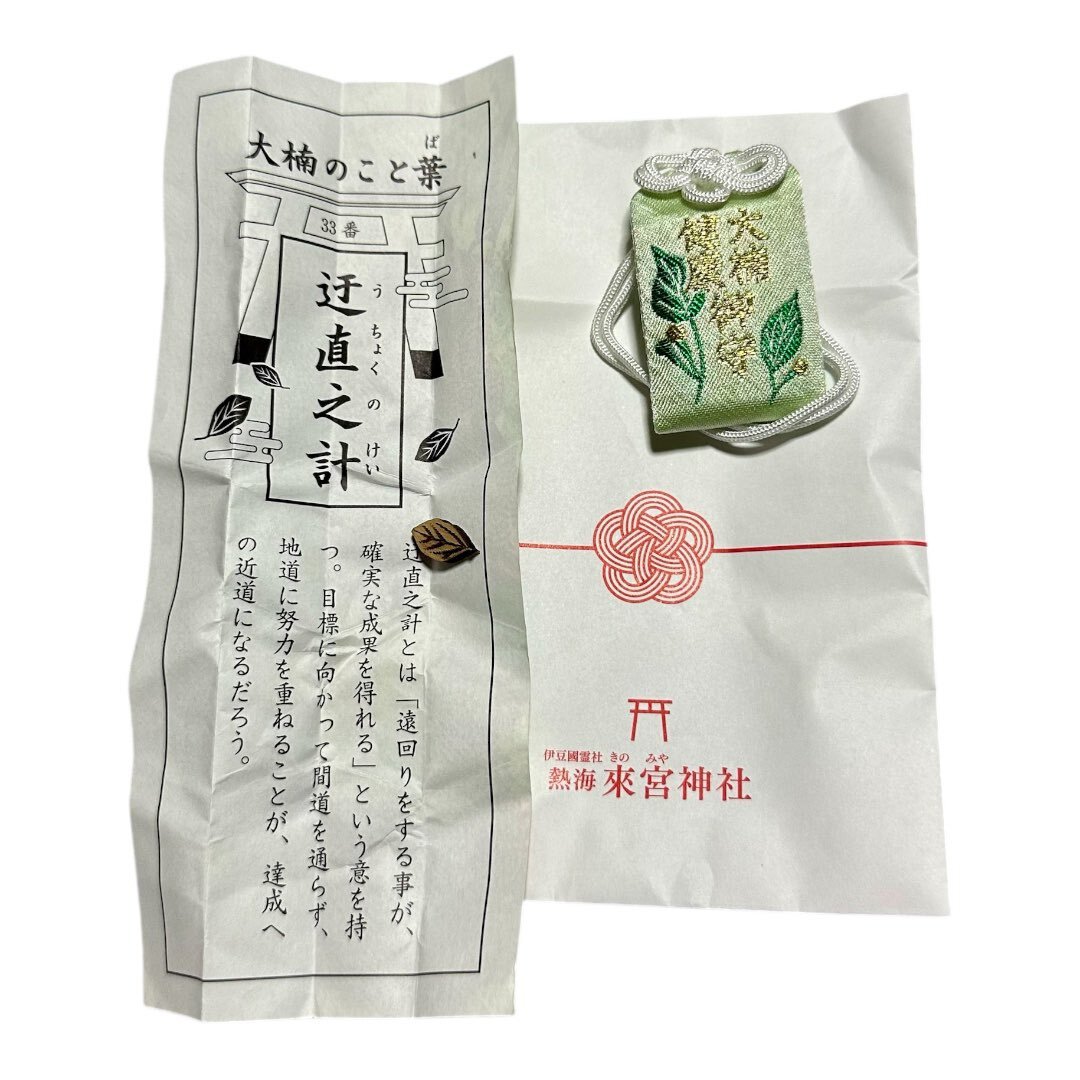 大楠のこと葉
ば
33番
迂直之計
うちょくのけい
迂直之計とは「遠回りをする事が、
確実な成果を得れる」という意を持
つ。目標に向かって間道を通らず、
地道に努力を重ねることが、達成へ
の近道になるだろう。
大楠御守
健康
伊豆國霊社 きの みや
熱海 來宮神社